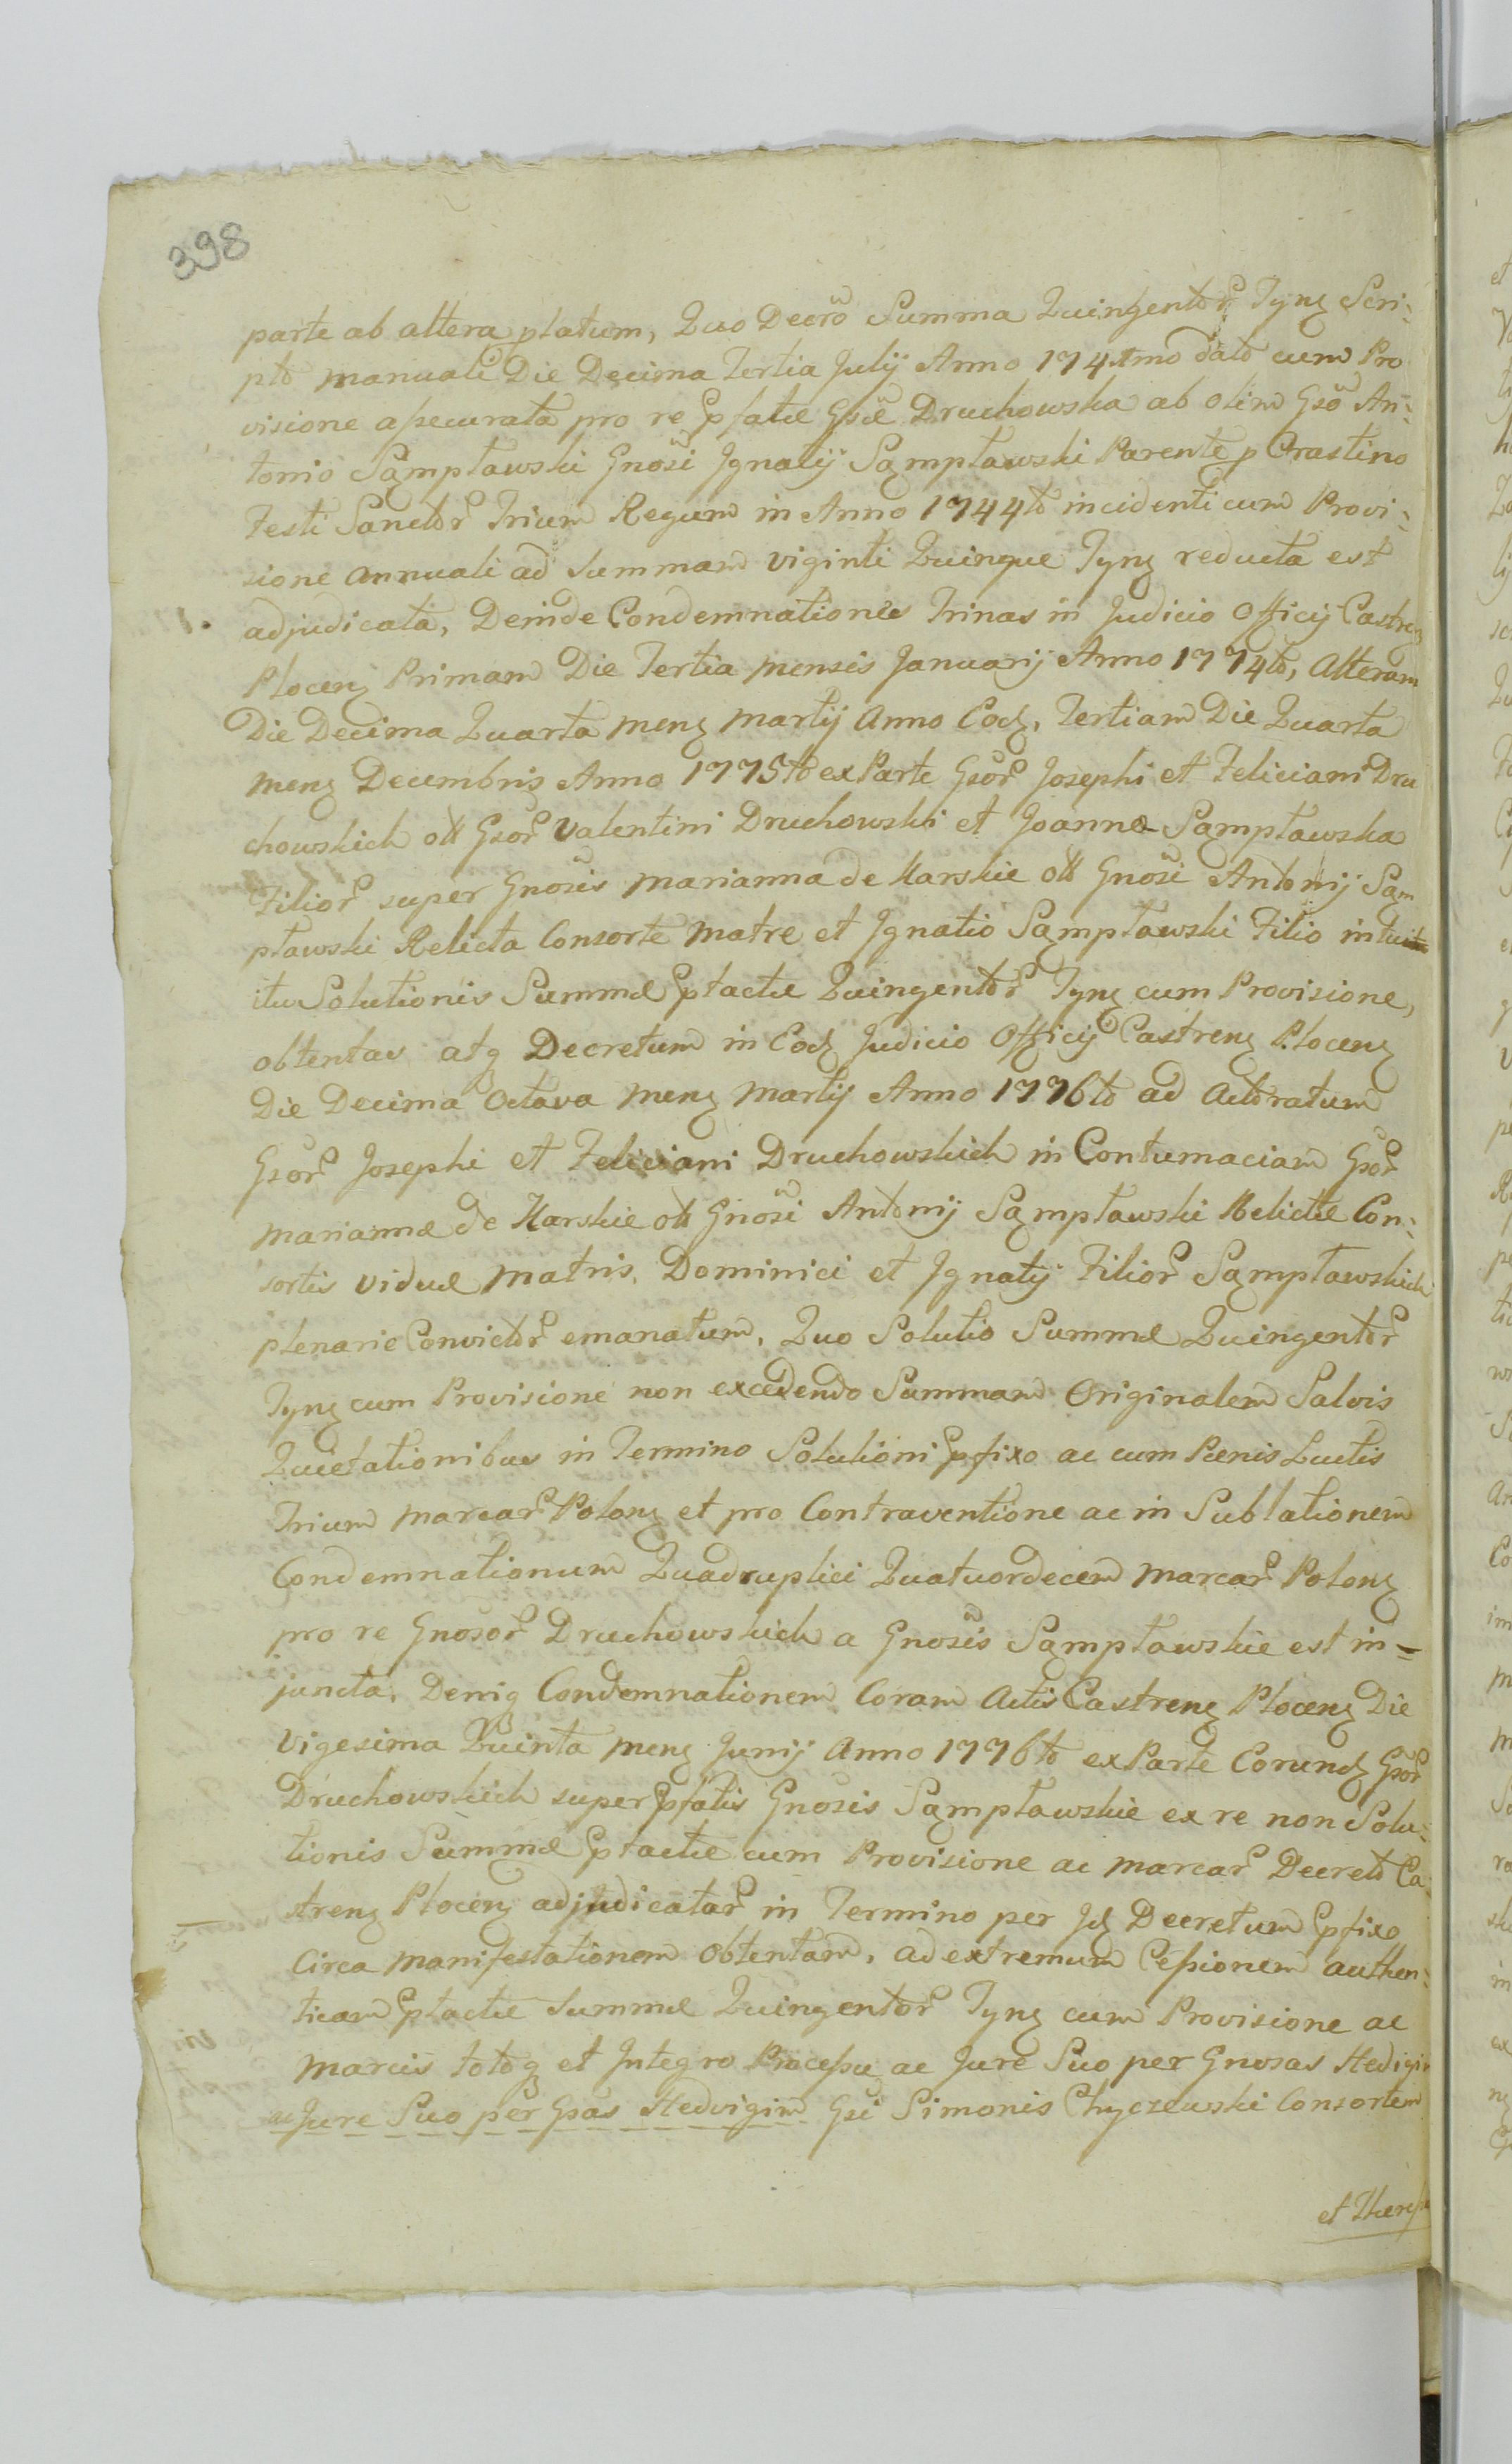 398
parte ab altera platum, Quo Decrō Summa Quingentor Tynȝ Scri:
pto manuali Die Decima Tertia Julij Anno 1741mo dato cum Pro
visione assecurata pro re pfatæ Gsæ Druchowska ab olim Gso An:
tonio Sąmpławski Gnosi Jgnatij Sąmpławski Parente p Crastino
Festi Sanctor Trium Regum in Anno 1744to incidenti cum Provi:
sione annuali ad summam viginti Quinque Tynȝ reducta est
adjudicata, Deinde Condemnationes Trinas in Judicio Officij Castrenȝ
Plocenȝ Primam Die Tertia mensis Januarij Anno 1774to, Alteram
Die Decima Quarta menȝ Martij Anno Eodȝ, Tertiam Die Quarta
menȝ Decembris Anno 1775to ex Parte Gsor Josephi et Feliciani Dru
chowskich oll Gsor Valentini Druchowski et Joanna Sąmpławska
Filior super Gnosis Marianna de Karskie oll Gnosi Antonij Sąm
pławski Relicta Consorte Matre et Jgnatio Sąmpławski Filio intu
itu Solutionis Summæ ptactæ Quingentor Tynȝ cum Provisione,
obtentas atq Decretum in Eodȝ Judicio Officij Castrenȝ Plocenȝ
Die Decima Octava menȝ Martij Anno 1776to ad Actoratum
Gsor Josephi et Feliciani Druchowskich in Contumaciam Gsor
Mariannæ de Karskie oll Gnosi Antonij Sąmpławski Relictæ Con:
sortis viduæ Matris, Dominici et Jgnatij Filior Sąmpławskich
plenarie Convictor emanatum, Quo Solutio Summæ Quingentor
Tynȝ cum Provisione non excedendo Summam Originalem Salvis
Quietationibus in Termino Solutioni pfixo ac cum Pœnis Luctis
Trium marcar Polonȝ et pro Contraventione ac in Sublationem
Condemnationum Quadruplici Quatuordecem marcar Polonȝ
pro re Gnosor Druchowskich a Gnosis Sąmpławskie est in=
juncta, Deniq Condemnationem Coram Actis Castrenȝ Plocenȝ Die
Vigesima Quinta menȝ Junij Anno 1776to ex Parte Eorundȝ Gsor
Druchowskich super pfatis Gnosis Sąmpławskie ex re non Solu:
tionis Summæ ptactæ cum Provisione ac marcar Decreto Ca:
strenȝ Plocenȝ adjudicatar in Termino per Jdȝ Decretum pfixo
Circa manifestationem obtentam, ad extremum Cessionem authen:
ticam ptactæ Summæ Quingentor Tynȝ cum Provisione ac
marcis totoq et Jntegro Processu ac Jure Suo per Gnosas Hedvigim
ac Jure Suo per Gsas Hedvigim Gsi Simonis Chyczewski Consortem
et Theres